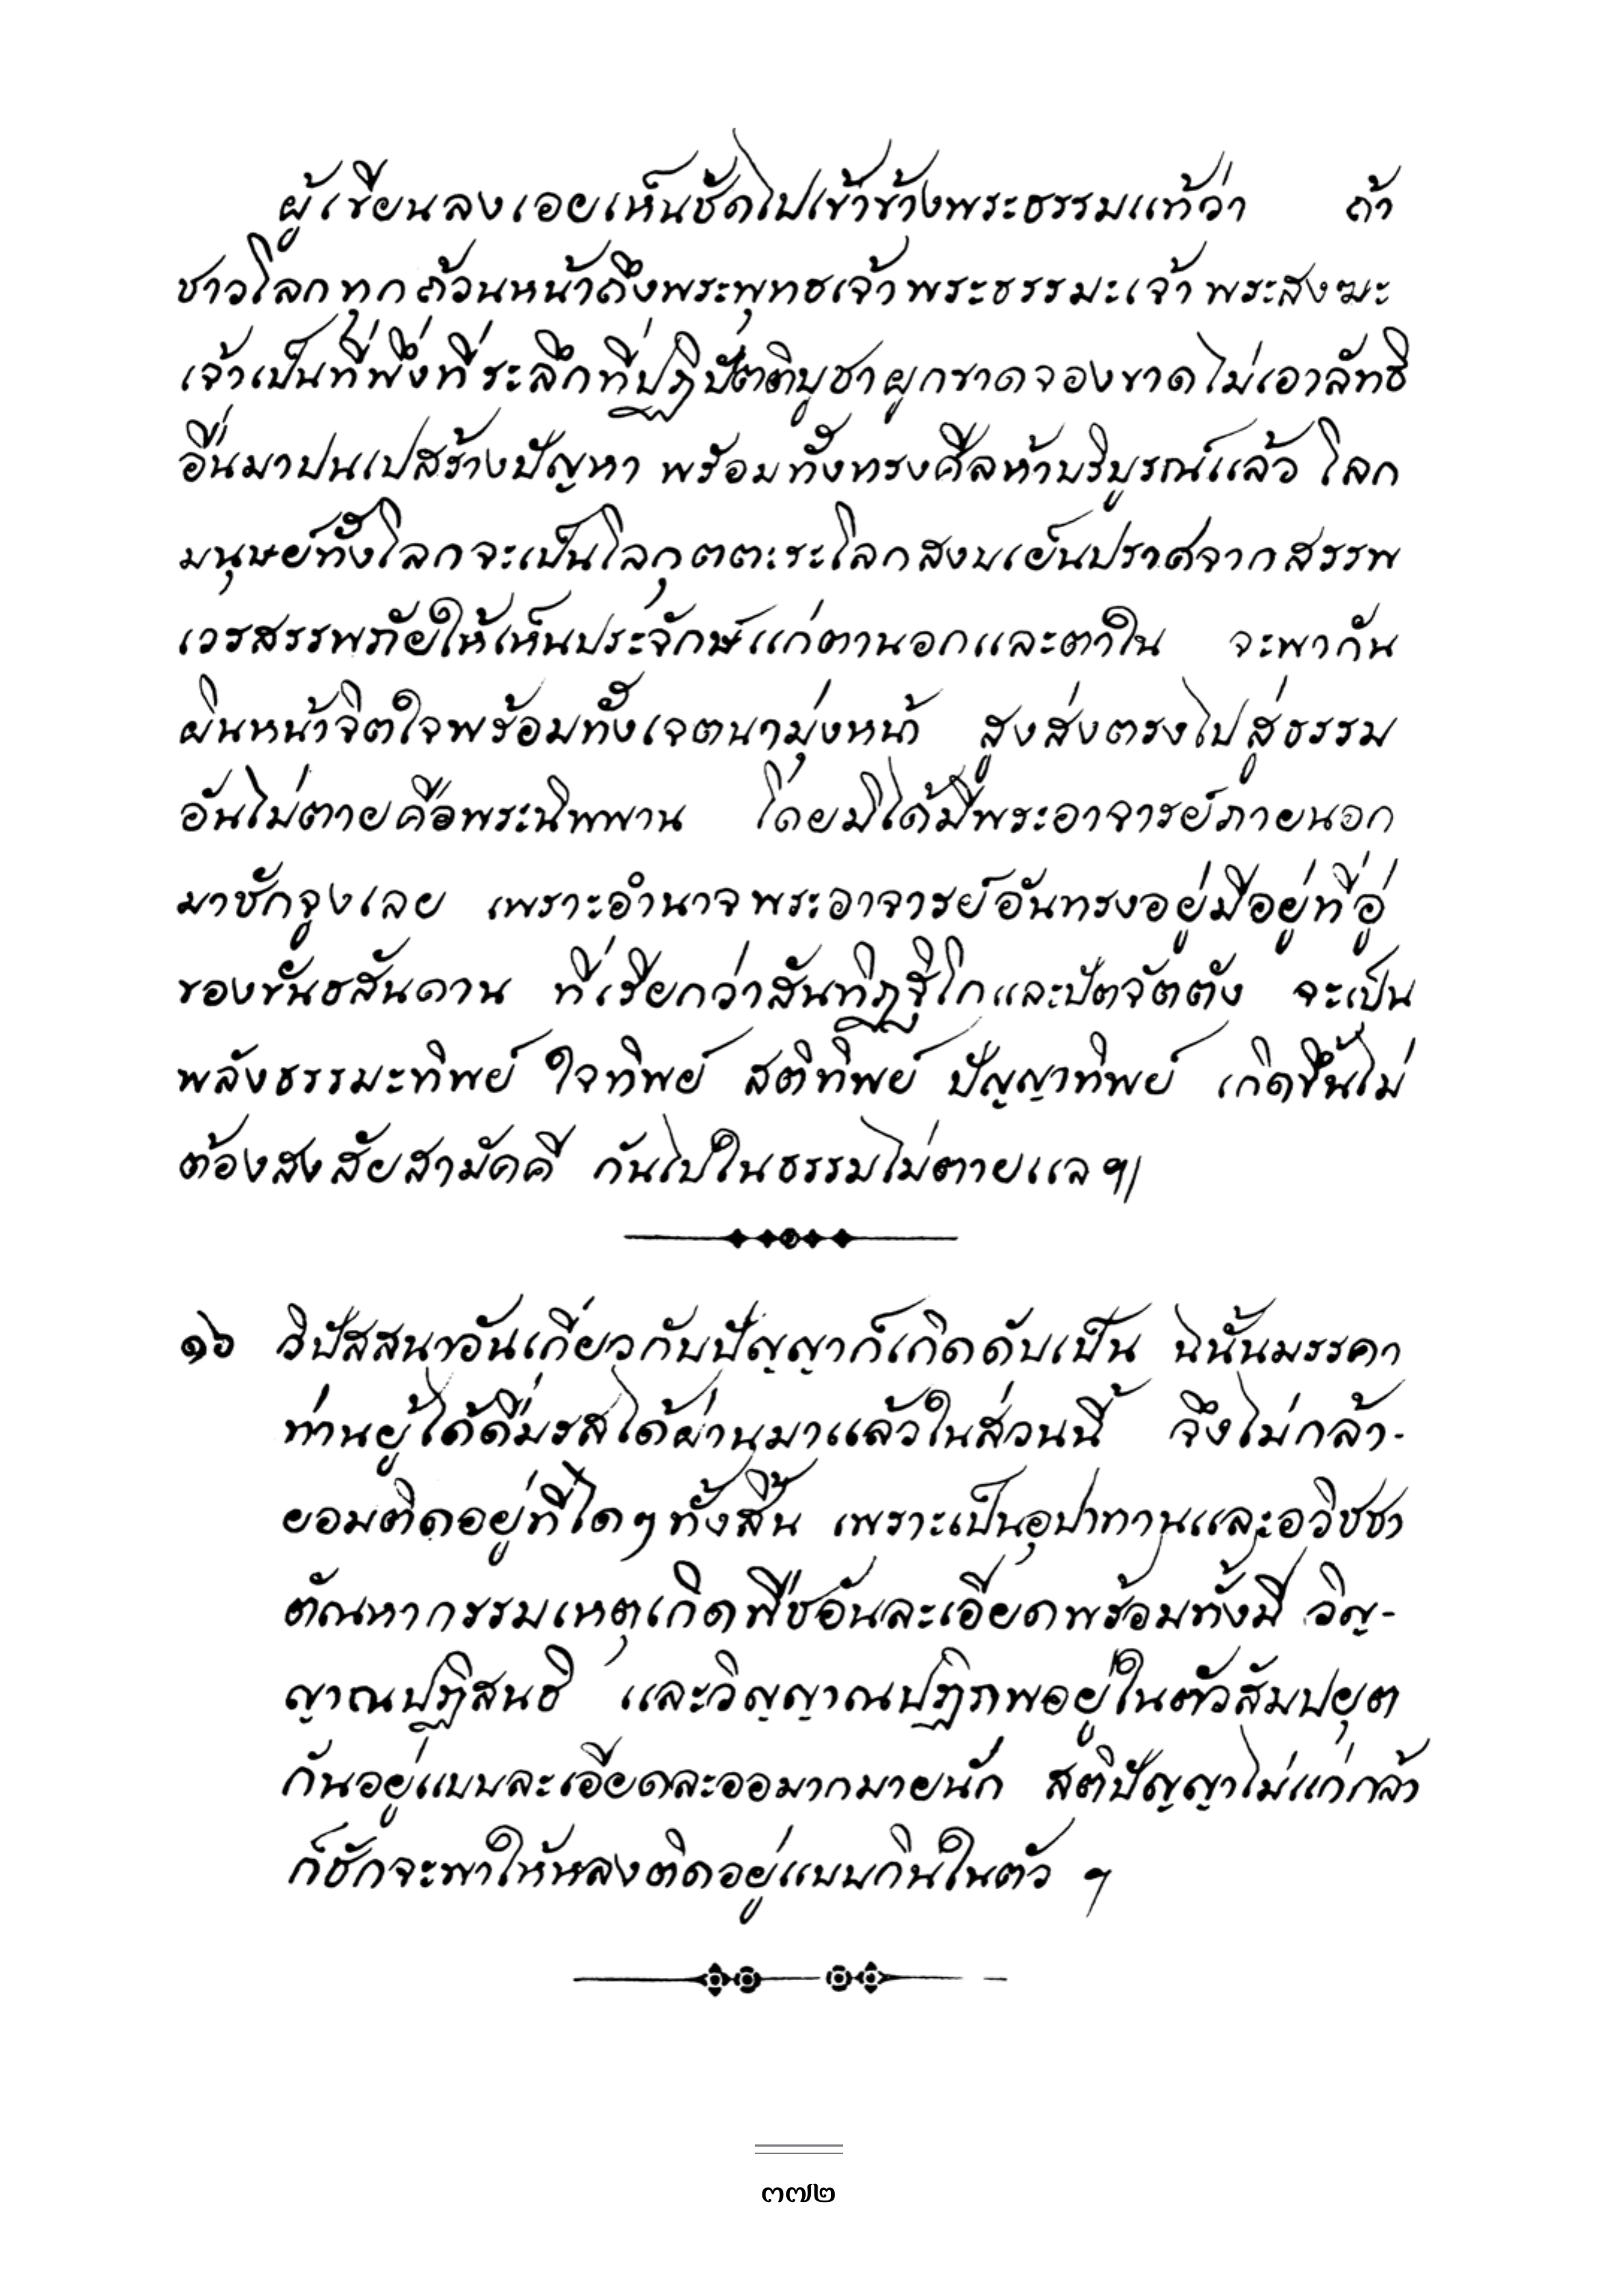 ผู้เขียนลงเอยเห็นชัดไปเข้าข้างพระธรรมแท้ว่า ถ้า
ชาวโลกทุกถ้วนหน้าถึงพระพุทธเจ้าพระธรรมะเจ้าพระสงฆะ
เจ้าเป็นที่พึ่งที่ระลึกที่ปฏิปัตติบูชาผูกขาดจองขาดไม่เอาลัทธิ
อื่นมาปนเปสร้างปัญหา พร้อมทั้งทรงศีลห้าบริบูรณ์แล้ว โลก
มนุษย์ทั้งโลกจะเป็นโลกุตตะระโลกสงบเย็นปราศจากสรรพ
เวรสรรพภัยให้เห็นประจักษ์แก่ตานอกและตาใน จะพากัน
ผินหน้าจิตใจพร้อมทั้งเจตนามุ่งหน้า สูงส่งตรงไปสู่ธรรม
อันไม่ตายคือพระนิพพาน โดยมิได้มีพระอาจารย์ภายนอก
มาชักจูงเลย เพราะอำนาจพระอาจารย์อันทรงอยู่มีอยู่ที่อู่
ของขันธสันดาน ที่เรียกว่าสันทิฏฐิโกและปัตจัตตัง จะเป็น
พลังธรรมะทิพย์ ใจทิพย์ สติทิพย์ ปัญญาทิพย์ เกิดขึ้นไม่
ต้องสงสัยสามัคคี กันไปในธรรมไม่ตายแล ฯ|
๑๖ วิปัสสนาอันเกี่ยวกับปัญญาก็เกิดดับเป็น ฉนั้นมรรคา
ท่านผู้ได้ดื่มรสได้ผ่านมาแล้วในส่วนนี้ จึงไม่กล้า-
ยอมติดอยู่ที่ใดๆทั้งสิ้น เพราะเป็นอุปาทานและอวิชชา
ตัณหากรรมเหตุเกิดพืชอันละเอียดพร้อมทั้งมี วิญ-
ญาณปฏิสนธิ และวิญญาณปฏิภพอยู่ในตัวสัมปยุต
กันอยู่แบบละเอียดละออมากมายนัก สติปัญญาไม่แก่กล้า
ก็ชักจะพาให้หลงติดอยู่แบบกินในตัว ฯ
๓๗๒